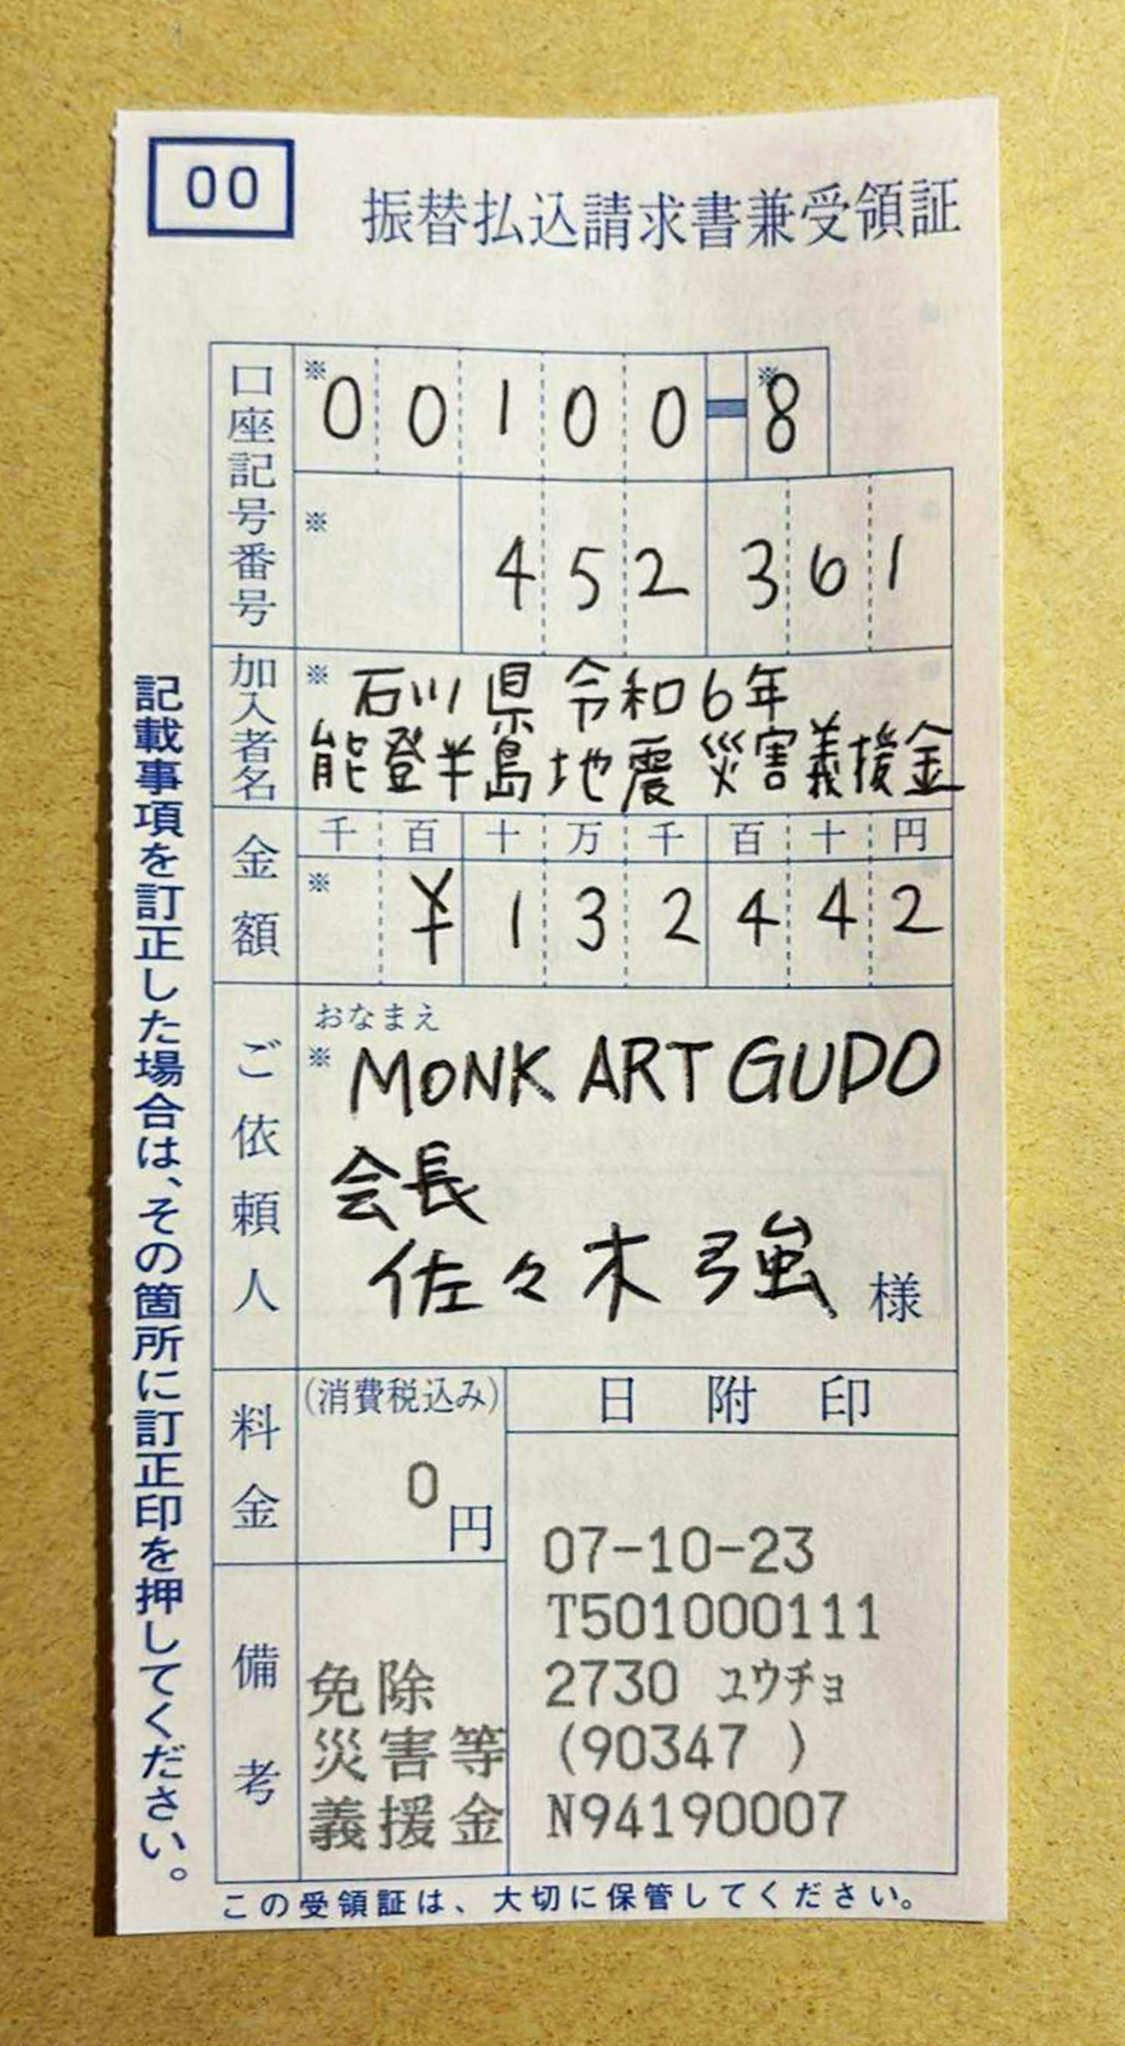 00
振替払込請求書兼受領証
口座記号番号
※ 0 0 1 0 0 - ※ 8
※ 4 5 2 3 6 1
加入者名
※ 石川県 令和6年
能登半島地震災害義援金
金額
千 百 十 万 千 百 十 円
※ ¥ 1 3 2 4 4 2
ご依頼人
おなまえ
※ MONK ART GUDO
会長
佐々木 強 様
料金
(消費税込み)
0 円
日附印
07-10-23
T501000111
2730 ユウチョ
(90347 )
N94190007
備考
免除
災害等
義援金
記載事項を訂正した場合は、その箇所に訂正印を押してください。
この受領証は、大切に保管してください。